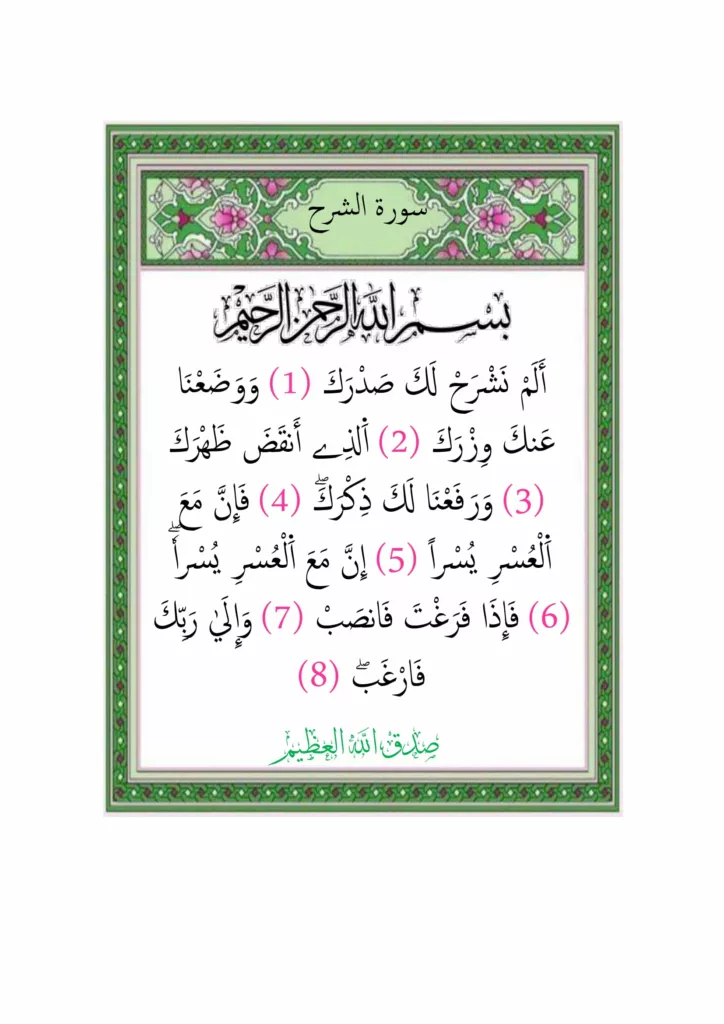 سورة الشرح
بسم الله الرحمن الرحيم
أَلَمْ نَشْرَحْ لَكَ صَدْرَكَ (1) وَوَضَعْنَا
عَنكَ وِزْرَكَ (2) اَ۬لذِےٓ أَنقَضَ ظَهْرَكَ
(3) وَرَفَعْنَا لَكَ ذِكْرَكَۖ (4) فَإِنَّ مَعَ
اَ۬لْعُسْرِ يُسْراً (5) إِنَّ مَعَ اَ۬لْعُسْرِ يُسْراٗۖ
(6) فَإِذَا فَرَغْتَ فَانصَبْ (7) وَإِلَيٰ رَبِّكَ
فَارْغَبۖ (8)
صدق الله العظيم